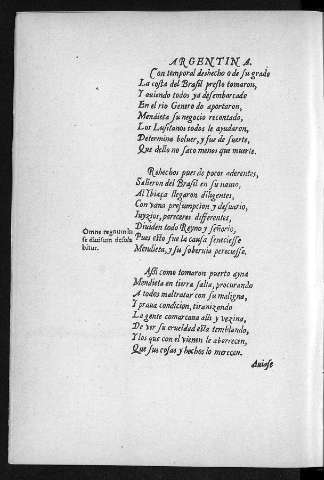 ARGENTINA.
Con temporal deshecho o de su grado
La costa del Brasil presto tomaron,
Y auiendo todos ya desembarcado
En el rio Genero do aportaron,
Mendieta su negocio recontado,
Los Lusitanos todos le ayudaron,
Determina boluer, y fue de suerte,
Que dello no saco menos que muerte.
Rehechos pues de pocos aderentes,
Salieron del Brasil en su nauio,
Al Ybiaça llegaron diligentes,
Con vana presumpcion y desuario,
Iuyzios, pareceres differentes,
Diuiden todo Reyno y señorio,
Omne regnum in
se diuisum desola
bitur.
Pues esto fue la causa feneciesse
Mendieta, y su soberuia pereciesse.
Assi como tomaron puerto ayna
Mendieta en tierra salta, procurando
A todos maltratar con su maligna,
Y praua condicion, tiranizando
La gente comarcana alli y vezina,
De ver su crueldad esta temblando,
Y los que con el vienen le aborrecen,
Que sus cosas y hechos lo merecen.
Auiase